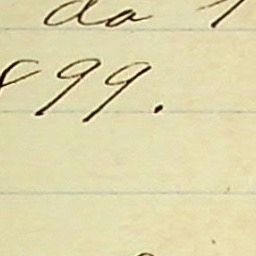 da
899.